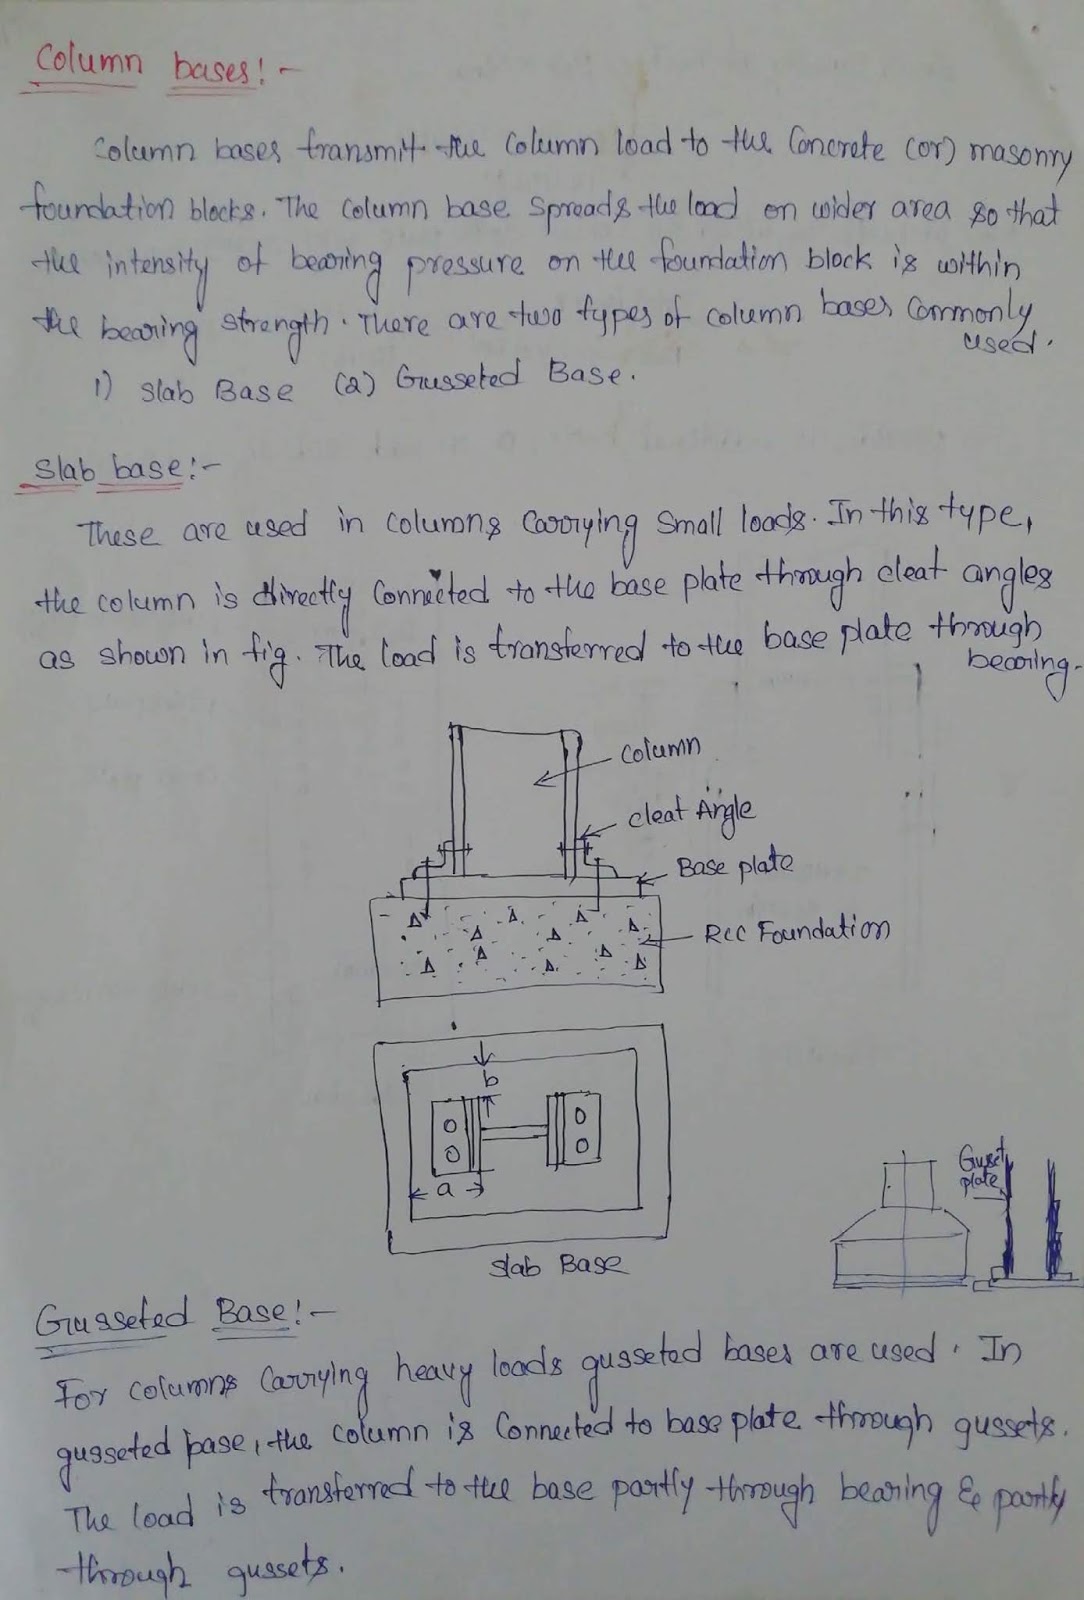 Column bases:-
Column bases transmit the column load to the Concrete (or) masonry
foundation blocks. The column base spreads the load on wider area so that
the intensity of bearing pressure on the foundation block is within
the bearing strength. There are two types of column bases commonly
used.
1) Slab Base (2) Gusseted Base.
Slab base:-
These are used in columns carrying small loads. In this type,
the column is directly connected to the base plate through cleat angles
as shown in fig. The load is transferred to the base plate through
bearing.
Column
Cleat Angle
Base plate
RCC Foundation
b
a
Slab Base
Gusset
plate
Gusseted Base:-
For columns carrying heavy loads gusseted bases are used. In
gusseted base, the column is connected to base plate through gussets.
The load is transferred to the base partly through bearing & partly
through gussets.